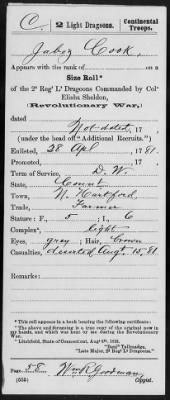 C. | 2 Light Dragoons. | Continental Troops.
Jabez Cook,
Appears with the rank of on a
Size Roll*
of the 2d Reg't L't Dragoons Commanded by Col'
Elisha Sheldon,
(Revolutionary War,)
dated
Not dated, 17 ,
(under the head of "Additional Recruits.")
Enlisted, 28 Apl , 1781.
Promoted, , 17 .
Term of Service, D. W.
State, Connt
Town, N. Hartford,
Trade, Farmer
Stature: F., 5 I., 6
Complex'n light
Eyes, grey ; Hair, brown
Casualties, deserted Aug. 15, 81.
Remarks:
* This roll appears in a book bearing the following certificate:
"The above and foregoing is a true copy of the original now in my hands, and which was kept by me or under my direction during the war.
"Litchfield, State of Connecticut, Aug't 1832.
"Benj'n Tallmadge,
"Late Major, 2d Reg't Lt Dragoons."
Page 58 Wm R Goodman,
(655) Copyist.